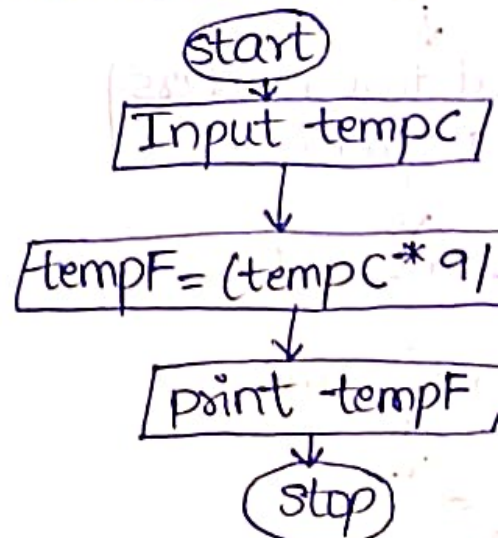 start
Input tempC
tempF = (tempC * 9/
print tempF
stop